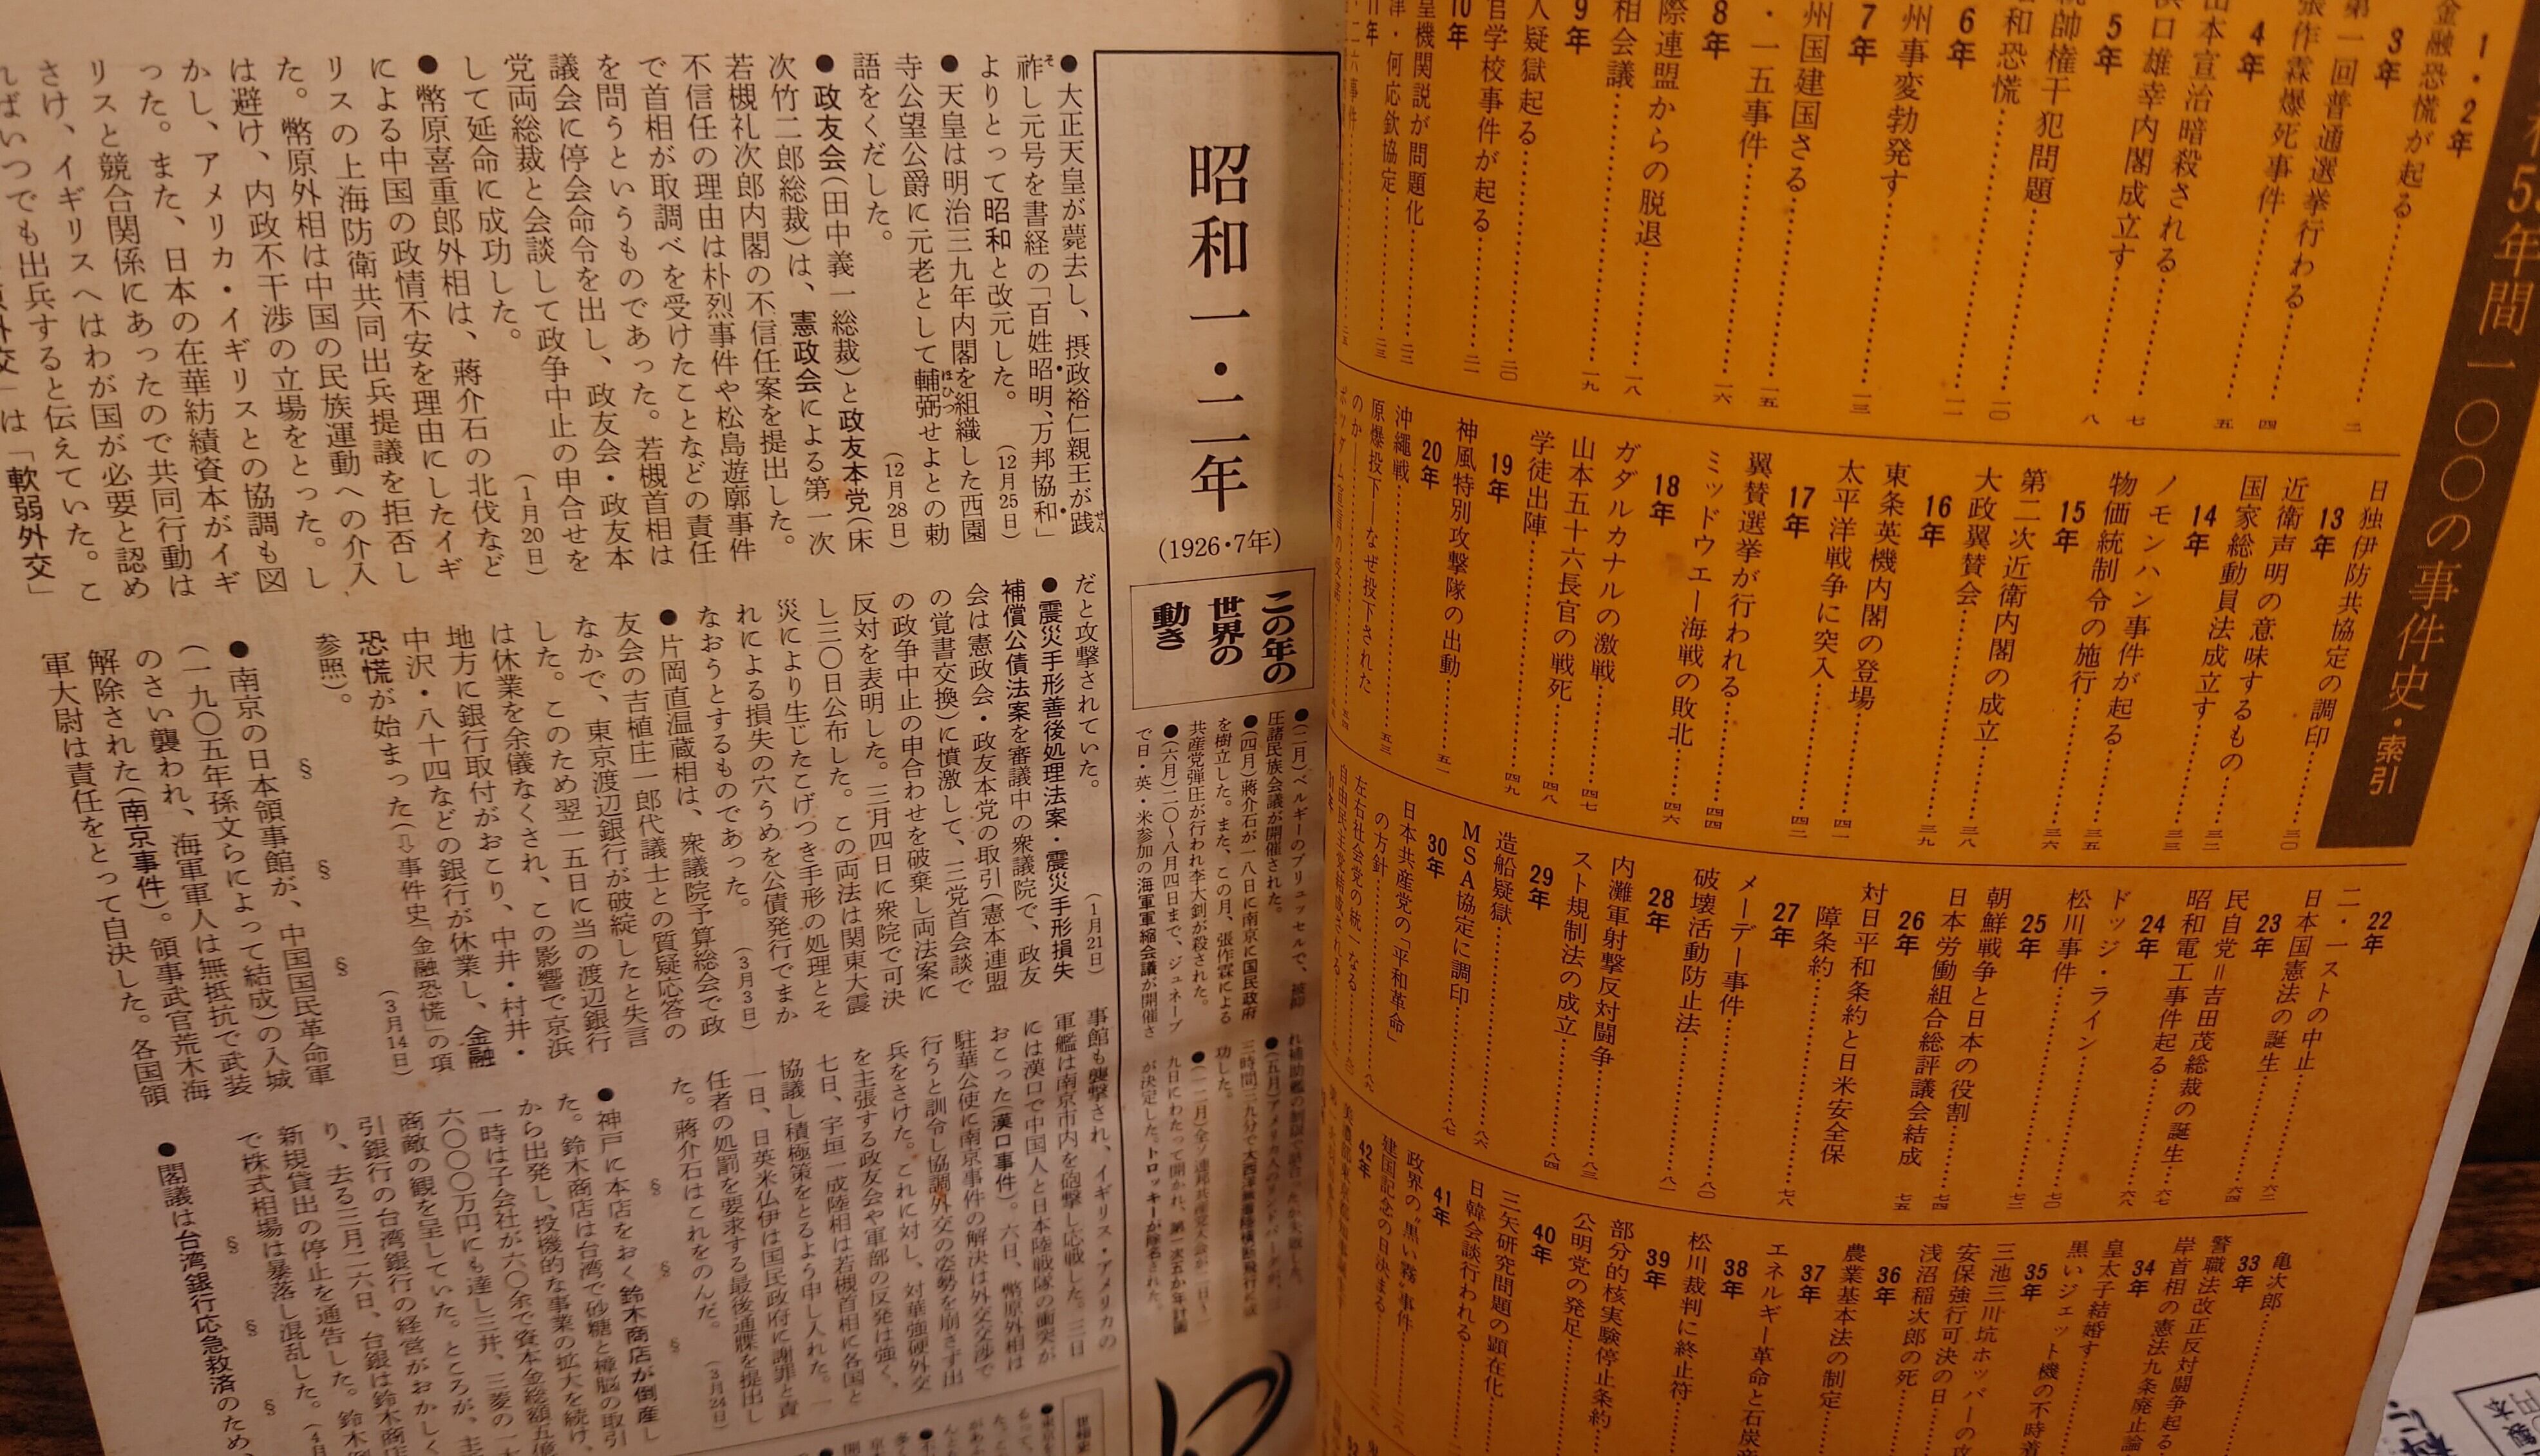 5年間一〇〇の事件史・索引
1・2年
金融恐慌が起る
二
3年
第一回普通選挙行わる
四
張作霖爆死事件
五
4年
山本宣治暗殺される
七
浜口雄幸内閣成立す
八
5年
統帥権干犯問題
一〇
昭和恐慌
一一
6年
満州事変勃発す
一三
7年
満州国建国さる
一五
五・一五事件
一六
8年
国際連盟からの脱退
一八
相会議
一九
9年
人疑獄起る
二〇
官学校事件が起る
二一
10年
皇機関説が問題化
二二
津・何応欽協定
二三
11年
日独伊防共協定の調印
三〇
13年
近衛声明の意味するもの
三二
国家総動員法成立す
三三
14年
ノモンハン事件が起る
三五
物価統制令の施行
三六
15年
第二次近衛内閣の成立
三八
大政翼賛会
三九
16年
東条英機内閣の登場
四一
太平洋戦争に突入
四二
17年
翼賛選挙が行われる
四四
ミッドウエー海戦の敗北
四六
18年
ガダルカナルの激戦
四七
山本五十六長官の戦死
四八
学徒出陣
四九
19年
神風特別攻撃隊の出動
五一
20年
沖繩戦
五三
原爆投下―なぜ投下された
のか
22年
二・一ストの中止
六二
日本国憲法の誕生
六四
23年
民自党＝吉田茂総裁の誕生
昭和電工事件起る
六七
24年
ドッジ・ライン
松川事件
七〇
25年
朝鮮戦争と日本の役割
日本労働組合総評議会結成
26年
対日平和条約と日米安全保
障条約
七八
27年
メーデー事件
八〇
破壊活動防止法
八一
28年
内灘軍射撃反対闘争
八三
スト規制法の成立
八四
29年
造船疑獄
八六
MSA協定に調印
八七
30年
日本共産党の「平和革命」
の方針
左右社会党の統一なる
亀次郎
33年
警職法改正反対闘争起る
岸首相の憲法九条廃止論
34年
皇太子結婚す
黒いジェット機の不時着
35年
三池三川坑ホッパーの攻
安保強行可決の日
浅沼稲次郎の死
36年
農業基本法の制定
37年
エネルギー革命と石炭産
38年
松川裁判に終止符
39年
部分的核実験停止条約
公明党の発足
40年
三矢研究問題の顕在化
日韓会談行われる
41年
政界の“黒い霧”事件
建国記念の日決まる
42年
昭和一・二年
(1926・7年)
この年の
世界の
動き
●(二月)ベルギーのブリュッセルで、被抑
圧諸民族会議が開催された。
●(四月)蔣介石が一八日に南京に国民政府
を樹立した。また、この月、張作霖による
共産党弾圧が行われ李大釗が殺された。
●(六月)二〇〜八月四日まで、ジュネーブ
で日・英・米参加の海軍軍縮会議が開催さ
功した。
九日にわたって開かれ、第一次五か年計画
が決定した。トロッキーが除名された。
●大正天皇が薨去し、摂政裕仁親王が践
祚し元号を書経の「百姓昭明、万邦協和」
よりとって昭和と改元した。(12月25日)
●天皇は明治三九年内閣を組織した西園
寺公望公爵に元老として輔弼せよとの勅
語をくだした。(12月28日)
●政友会(田中義一総裁)と政友本党(床
次竹二郎総裁)は、憲政会による第一次
若槻礼次郎内閣の不信任案を提出した。
不信任の理由は朴烈事件や松島遊廓事件
で首相が取調べを受けたことなどの責任
を問うというものであった。若槻首相は
議会に停会命令を出し、政友会・政友本
党両総裁と会談して政争中止の申合せを
して延命に成功した。(1月20日)
●幣原喜重郎外相は、蔣介石の北伐など
による中国の政情不安を理由にしたイギ
リスの上海防衛共同出兵提議を拒否し
た。幣原外相は中国の民族運動への介入
は避け、内政不干渉の立場をとった。し
かし、アメリカ・イギリスとの協調も図
った。また、日本の在華紡績資本がイギ
リスと競合関係にあったので共同行動は
さけ、イギリスへはわが国が必要と認め
ればいつでも出兵すると伝えていた。こ
は「軟弱外交」
だと攻撃されていた。(1月21日)
●震災手形善後処理法案・震災手形損失
補償公債法案を審議中の衆議院で、政友
会は憲政会・政友本党の取引(憲本連盟
の覚書交換)に憤激して、三党首会談で
の政争中止の申合わせを破棄し両法案に
反対を表明した。三月四日に衆院で可決
し三〇日公布した。この両法は関東大震
災により生じたこげつき手形の処理とそ
れによる損失の穴うめを公債発行でまか
なおうとするものであった。(3月3日)
●片岡直温蔵相は、衆議院予算総会で政
友会の吉植庄一郎代議士との質疑応答の
なかで、東京渡辺銀行が破綻したと失言
した。このため翌一五日に当の渡辺銀行
は休業を余儀なくされ、この影響で京浜
地方に銀行取付がおこり、中井・村井・
中沢・八十四などの銀行が休業し、金融
恐慌が始まった(⇨事件史「金融恐慌」の項
参照)。(3月14日)
§ § §
●南京の日本領事館が、中国国民革命軍
(一九〇五年孫文らによって結成)の入城
のさい襲われ、海軍軍人は無抵抗で武装
解除された(南京事件)。領事武官荒木海
軍大尉は責任をとって自決した。各国領
事館も襲撃され、イギリス・アメリカの
軍艦は南京市内を砲撃し応戦した。三日
には漢口で中国人と日本陸戦隊の衝突が
おこった(漢口事件)。六日、幣原外相は
駐華公使に南京事件の解決は外交交渉で
行うと訓令し協調外交の姿勢を崩さず出
兵をさけた。これに対し、対華強硬外交
を主張する政友会や軍部の反発は強く、
七日、宇垣一成陸相は若槻首相に各国と
協議し積極策をとるよう申し入れた。一
一日、日英米仏伊は国民政府に謝罪と責
任者の処罰を要求する最後通牒を提出し
た。蔣介石はこれをのんだ。(3月24日)
§ § §
●神戸に本店をおく鈴木商店が倒産し
た。鈴木商店は台湾で砂糖と樟脳の取引
から出発し、投機的な事業の拡大を続け、
一時は子会社が六〇余で資本金総額五億
六〇〇〇万円にも達し三井、三菱の一大
商敵の観を呈していた。ところが、主
引銀行の台湾銀行の経営がおかしく
り、去る三月二六日、台銀は鈴木商店
新規貸出の停止を通告した。鈴木倒
で株式相場は暴落し混乱した。(4月
§ § §
●閣議は台湾銀行応急救済のため、